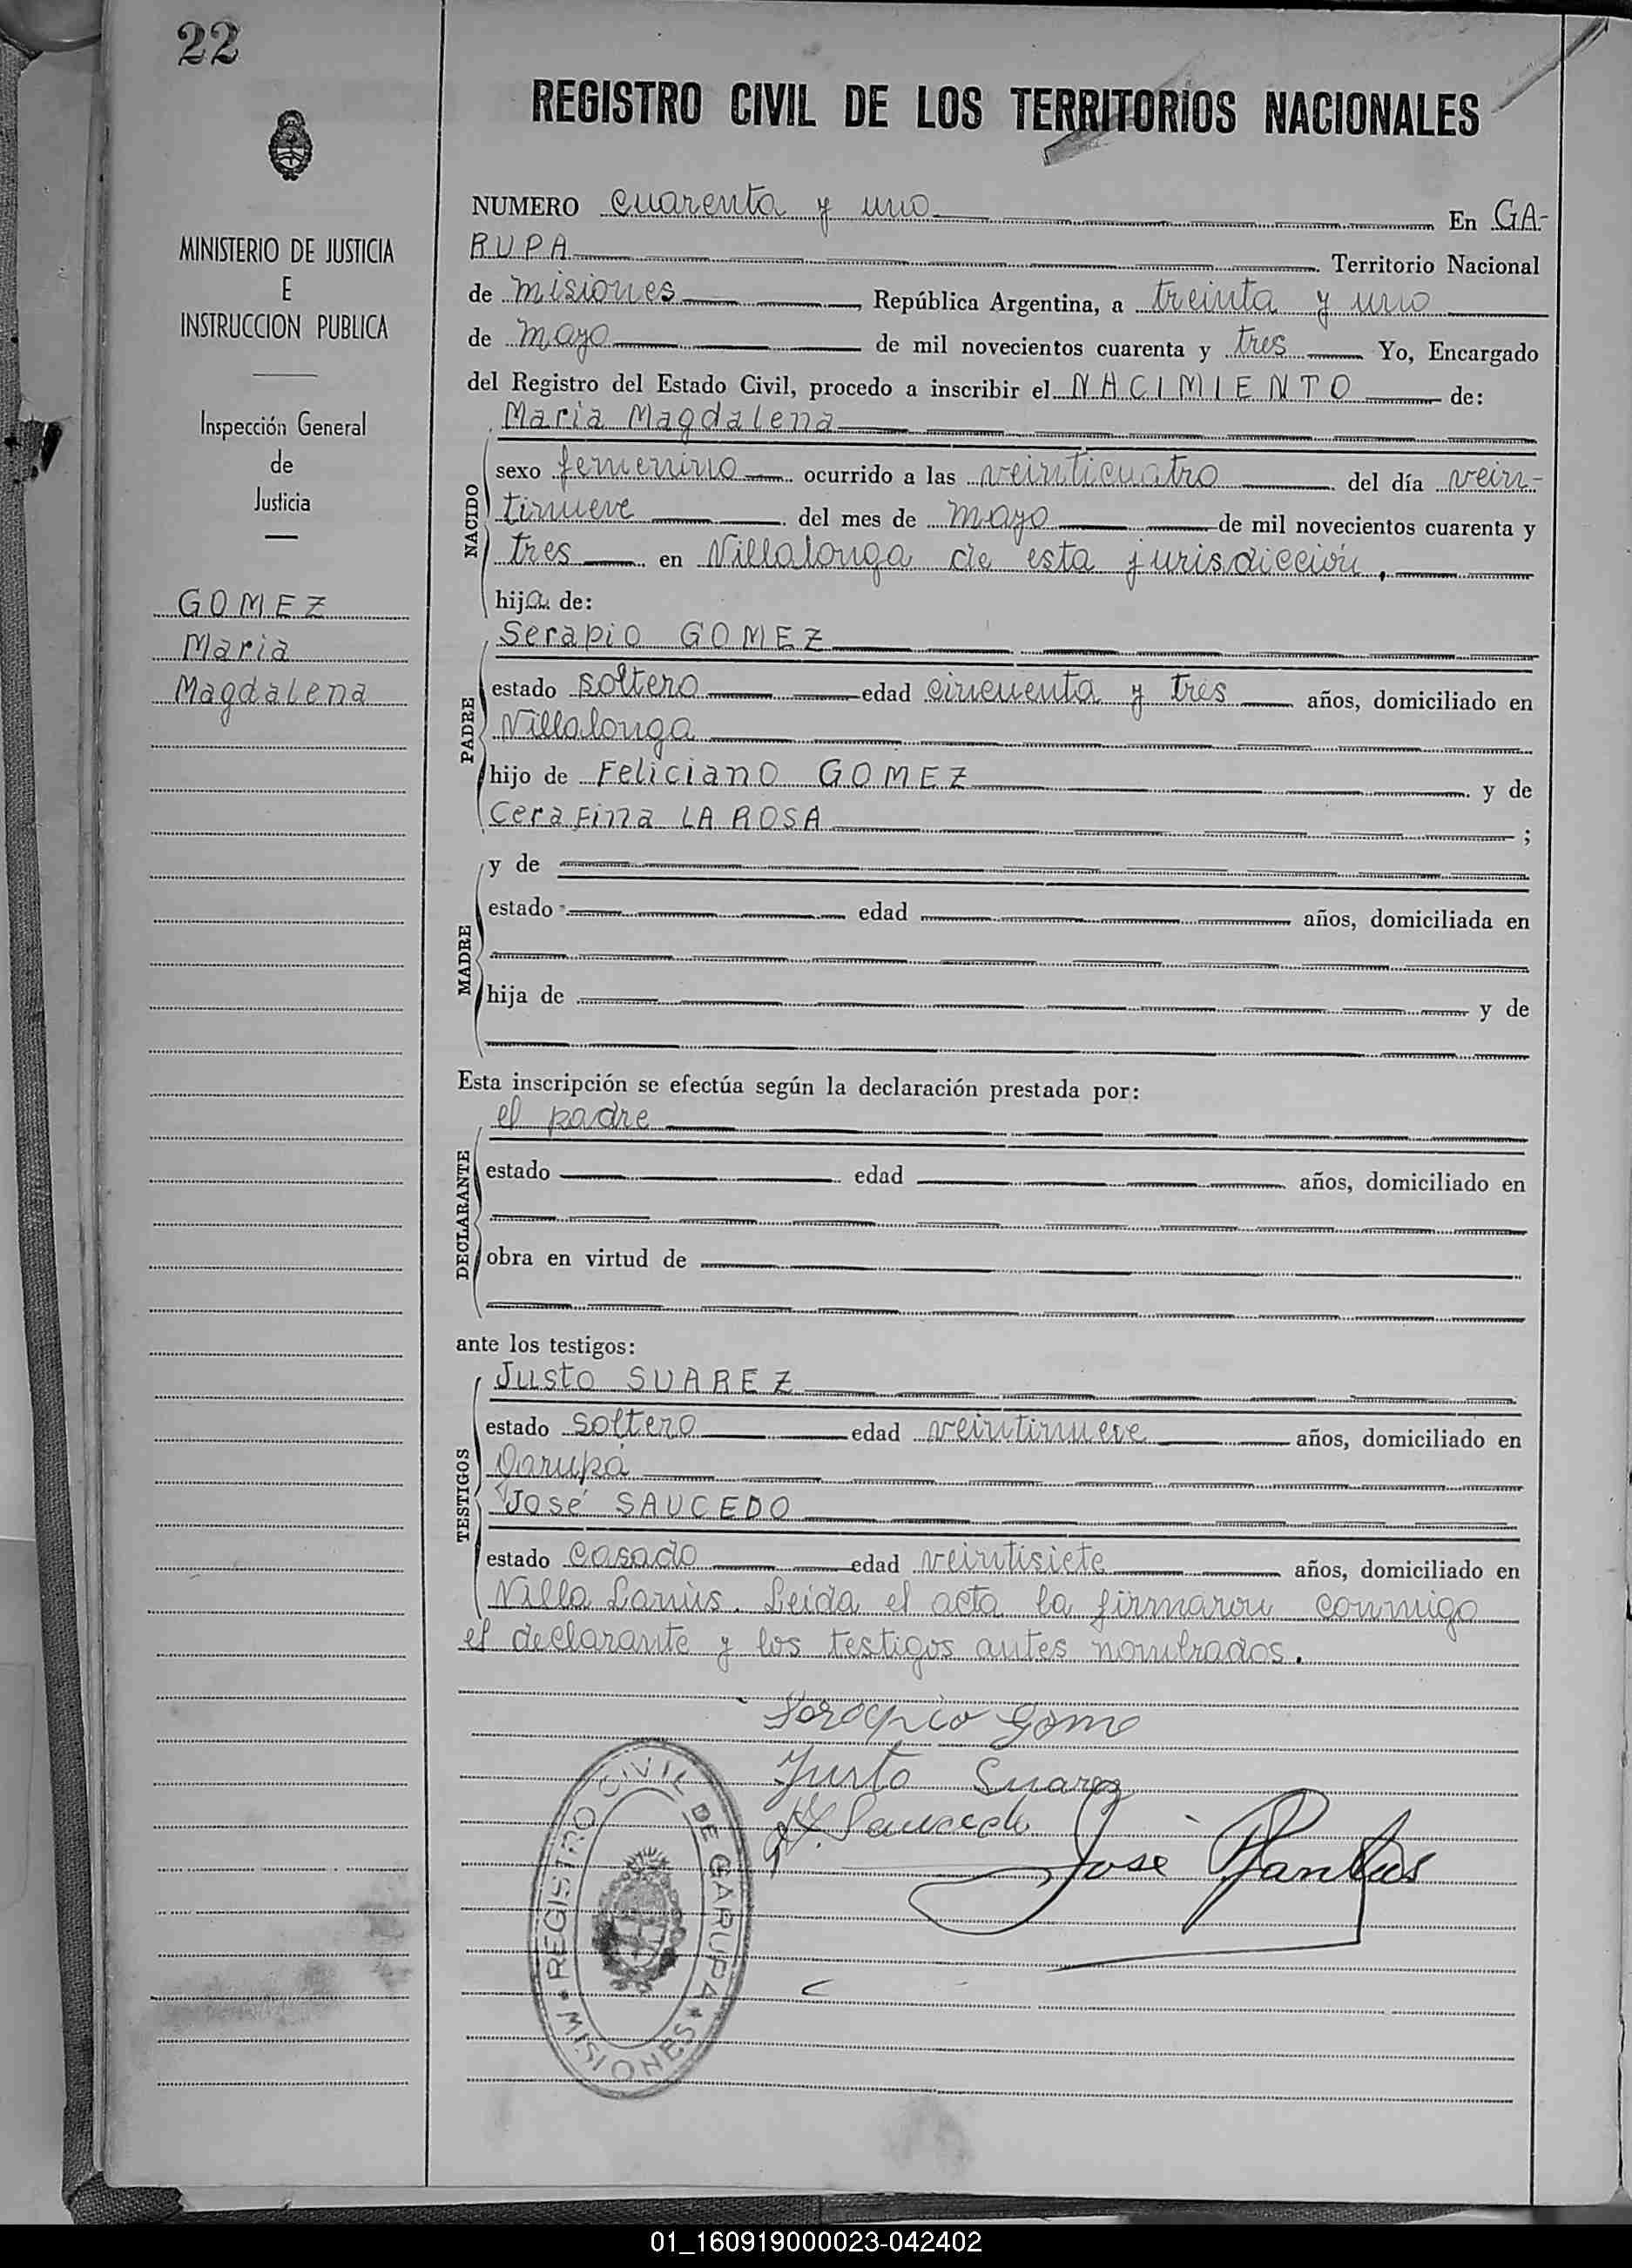 22
REGISTRO CIVIL DE LOS TERRITORIOS NACIONALES
MINISTERIO DE JUSTICIA
E
INSTRUCCION PUBLICA
Inspección General
de
Justicia
GOMEZ
Maria
Magdalena
NUMERO cuarenta y uno En GA-
RUPA Territorio Nacional
de Misiones, República Argentina, a treinta y uno
de Mayo de mil novecientos cuarenta y tres Yo, Encargado
del Registro del Estado Civil, procedo a inscribir el NACIMIENTO de:
Maria Magdalena
NACIDO
sexo femenino ocurrido a las veinticuatro del día vein-
tinueve del mes de Mayo de mil novecientos cuarenta y
tres en Villalonga de esta jurisdicción,
hija de:
Serapio GOMEZ
PADRE
estado soltero edad cincuenta y tres años, domiciliado en
Villalonga
hijo de Feliciano GOMEZ y de
Cerafina LA ROSA ;
MADRE
y de
estado edad años, domiciliada en
hija de y de
Esta inscripción se efectúa según la declaración prestada por:
el padre
DECLARANTE
estado edad años, domiciliado en
obra en virtud de
ante los testigos:
Justo SUAREZ
TESTIGOS
estado soltero edad veintinueve años, domiciliado en
Garupá
José SAUCEDO
estado casado edad veintisiete años, domiciliado en
Villa Lanús. Leida el acta la firmaron conmigo
el declarante y los testigos antes nombrados.
Serapio Gome
Justo Suarez
Saucedo
José
REGISTRO CIVIL DE GARUPA
* MISIONES *
01_160919000023-042402